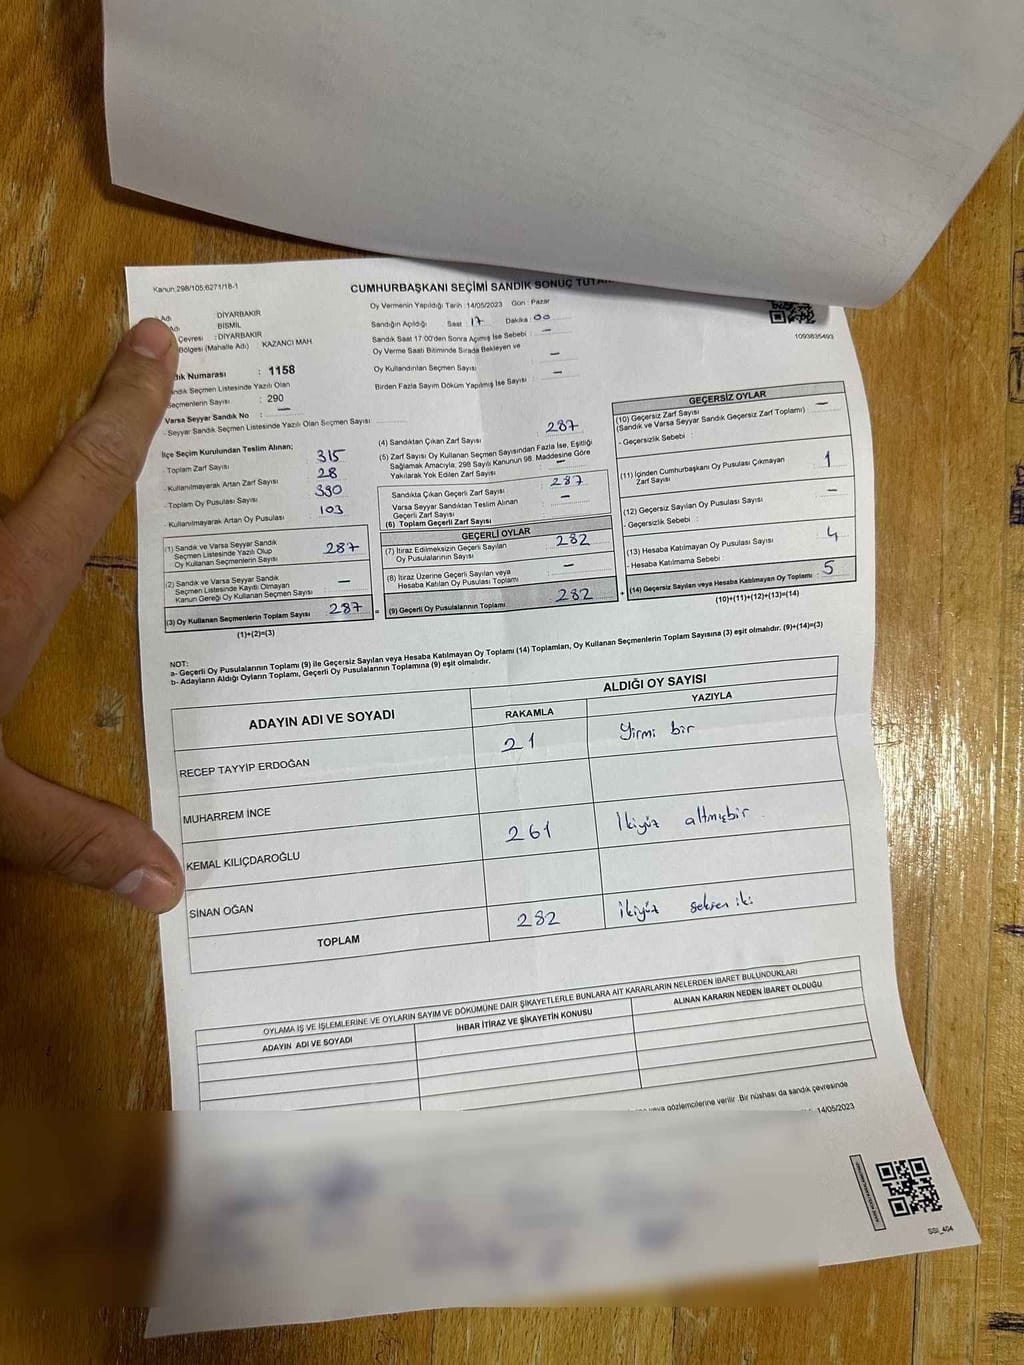 Kanun:298/105;6271/18-1
CUMHURBAŞKANI SEÇİMİ SANDIK SONUÇ
Adı : DİYARBAKIR
Adı : BİSMİL
Çevresi : DİYARBAKIR
Bölgesi (Mahalle Adı) KAZANCI MAH
Numarası : 1158
Seçmen Listesinde Yazılı Olan
Seçmenlerin Sayısı : 290
Varsa Seyyar Sandık No : —
- Seyyar Sandık Seçmen Listesinde Yazılı Olan Seçmen Sayısı
Oy Vermenin Yapıldığı Tarih :14/05/2023 Gün : Pazar
Sandığın Açıldığı Saat : 17 Dakika : 00
Sandık Saat 17:00'den Sonra Açımış İse Sebebi : —
Oy Verme Saati Bitiminde Sırada Bekleyen ve
Oy Kullandırılan Seçmen Sayısı : —
Birden Fazla Sayım Döküm Yapılmış İse Sayısı : —
1093835493
İlçe Seçim Kurulundan Teslim Alınan;
- Toplam Zarf Sayısı 315
- Kullanılmayarak Artan Zarf Sayısı 28
- Toplam Oy Pusulası Sayısı 390
- Kullanılmayarak Artan Oy Pusulası 103
(1) Sandık ve Varsa Seyyar Sandık
Seçmen Listesinde Yazılı Olup
Oy Kullanan Seçmenlerin Sayısı 287
(2) Sandık ve Varsa Seyyar Sandık
Seçmen Listesinde Kayıtlı Olmayan
Kanun Gereği Oy Kullanan Seçmen Sayısı —
(3) Oy Kullanan Seçmenlerin Toplam Sayısı 287
(1)+(2)=(3)
(4) Sandıktan Çıkan Zarf Sayısı 287
(5) Zarf Sayısı Oy Kullanan Seçmen Sayısından Fazla İse, Eşitliği
Sağlamak Amacıyla, 298 Sayılı Kanunun 98. Maddesine Göre
Yakılarak Yok Edilen Zarf Sayısı —
Sandıkta Çıkan Geçerli Zarf Sayısı 287
Varsa Seyyar Sandıktan Teslim Alınan
Geçerli Zarf Sayısı —
(6) Toplam Geçerli Zarf Sayısı
GEÇERLİ OYLAR
(7) İtiraz Edilmeksizin Geçerli Sayılan
Oy Pusulalarının Sayısı 282
(8) İtiraz Üzerine Geçerli Sayılan veya
Hesaba Katılan Oy Pusulası Toplamı —
= (9) Geçerli Oy Pusulalarının Toplamı 282
GEÇERSİZ OYLAR
(10) Geçersiz Zarf Sayısı —
(Sandık ve Varsa Seyyar Sandık Geçersiz Zarf Toplamı)
- Geçersizlik Sebebi :
(11) İçinden Cumhurbaşkanı Oy Pusulası Çıkmayan
Zarf Sayısı 1
(12) Geçersiz Sayılan Oy Pusulası Sayısı —
- Geçersizlik Sebebi :
(13) Hesaba Katılmayan Oy Pusulası Sayısı 4
- Hesaba Katılmama Sebebi :
+ (14) Geçersiz Sayılan veya Hesaba Katılmayan Oy Toplamı : 5
(10)+(11)+(12)+(13)=(14)
NOT:
a- Geçerli Oy Pusulalarının Toplamı (9) ile Geçersiz Sayılan veya Hesaba Katılmayan Oy Toplamı (14) Toplamları, Oy Kullanan Seçmenlerin Toplam Sayısına (3) eşit olmalıdır. (9)+(14)=(3)
b- Adayların Aldığı Oyların Toplamı, Geçerli Oy Pusulalarının Toplamına (9) eşit olmalıdır.
ADAYIN ADI VE SOYADI
ALDIĞI OY SAYISI
RAKAMLA YAZIYLA
RECEP TAYYİP ERDOĞAN 21 Yirmi bir
MUHARREM İNCE
KEMAL KILIÇDAROĞLU 261 İkiyüz altmışbir
SİNAN OĞAN
TOPLAM 282 İkiyüz seksen iki
OYLAMA İŞ VE İŞLEMLERİNE VE OYLARIN SAYIM VE DÖKÜMÜNE DAİR ŞİKAYETLERLE BUNLARA AİT KARARLARIN NELERDEN İBARET BULUNDUKLARI
ADAYIN ADI VE SOYADI İHBAR İTİRAZ VE ŞİKAYETİN KONUSU ALINAN KARARIN NEDEN İBARET OLDUĞU
veya gözlemcilerine verilir. Bir nüshası da sandık çevresinde
14/05/2023
SSI_404